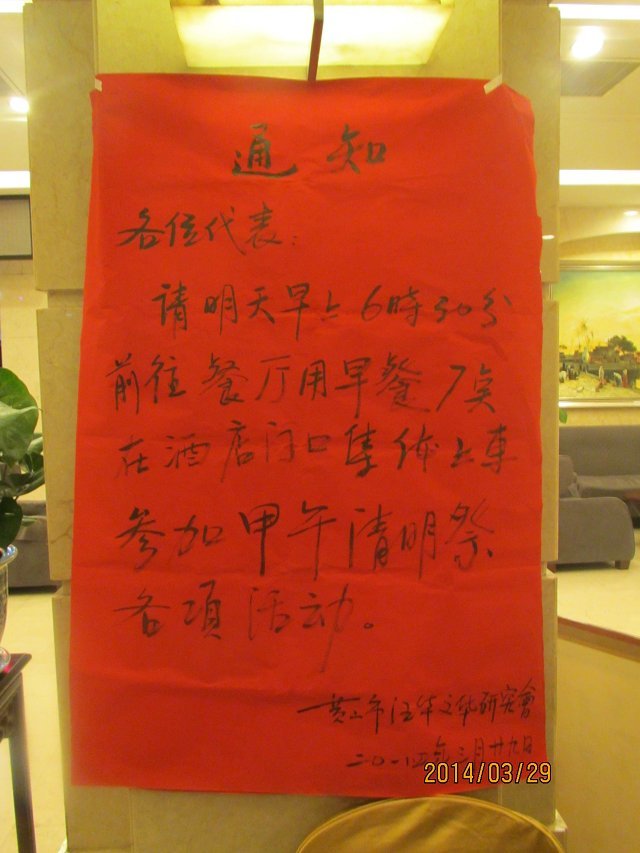 通知
各位代表：
请明天早上6時30分
前往餐厅用早餐7点
在酒店门口集体上車
参加甲午清明祭
各項活动。
黄山市汪华文化研究會
二〇一四年三月廿九日
2014/03/29